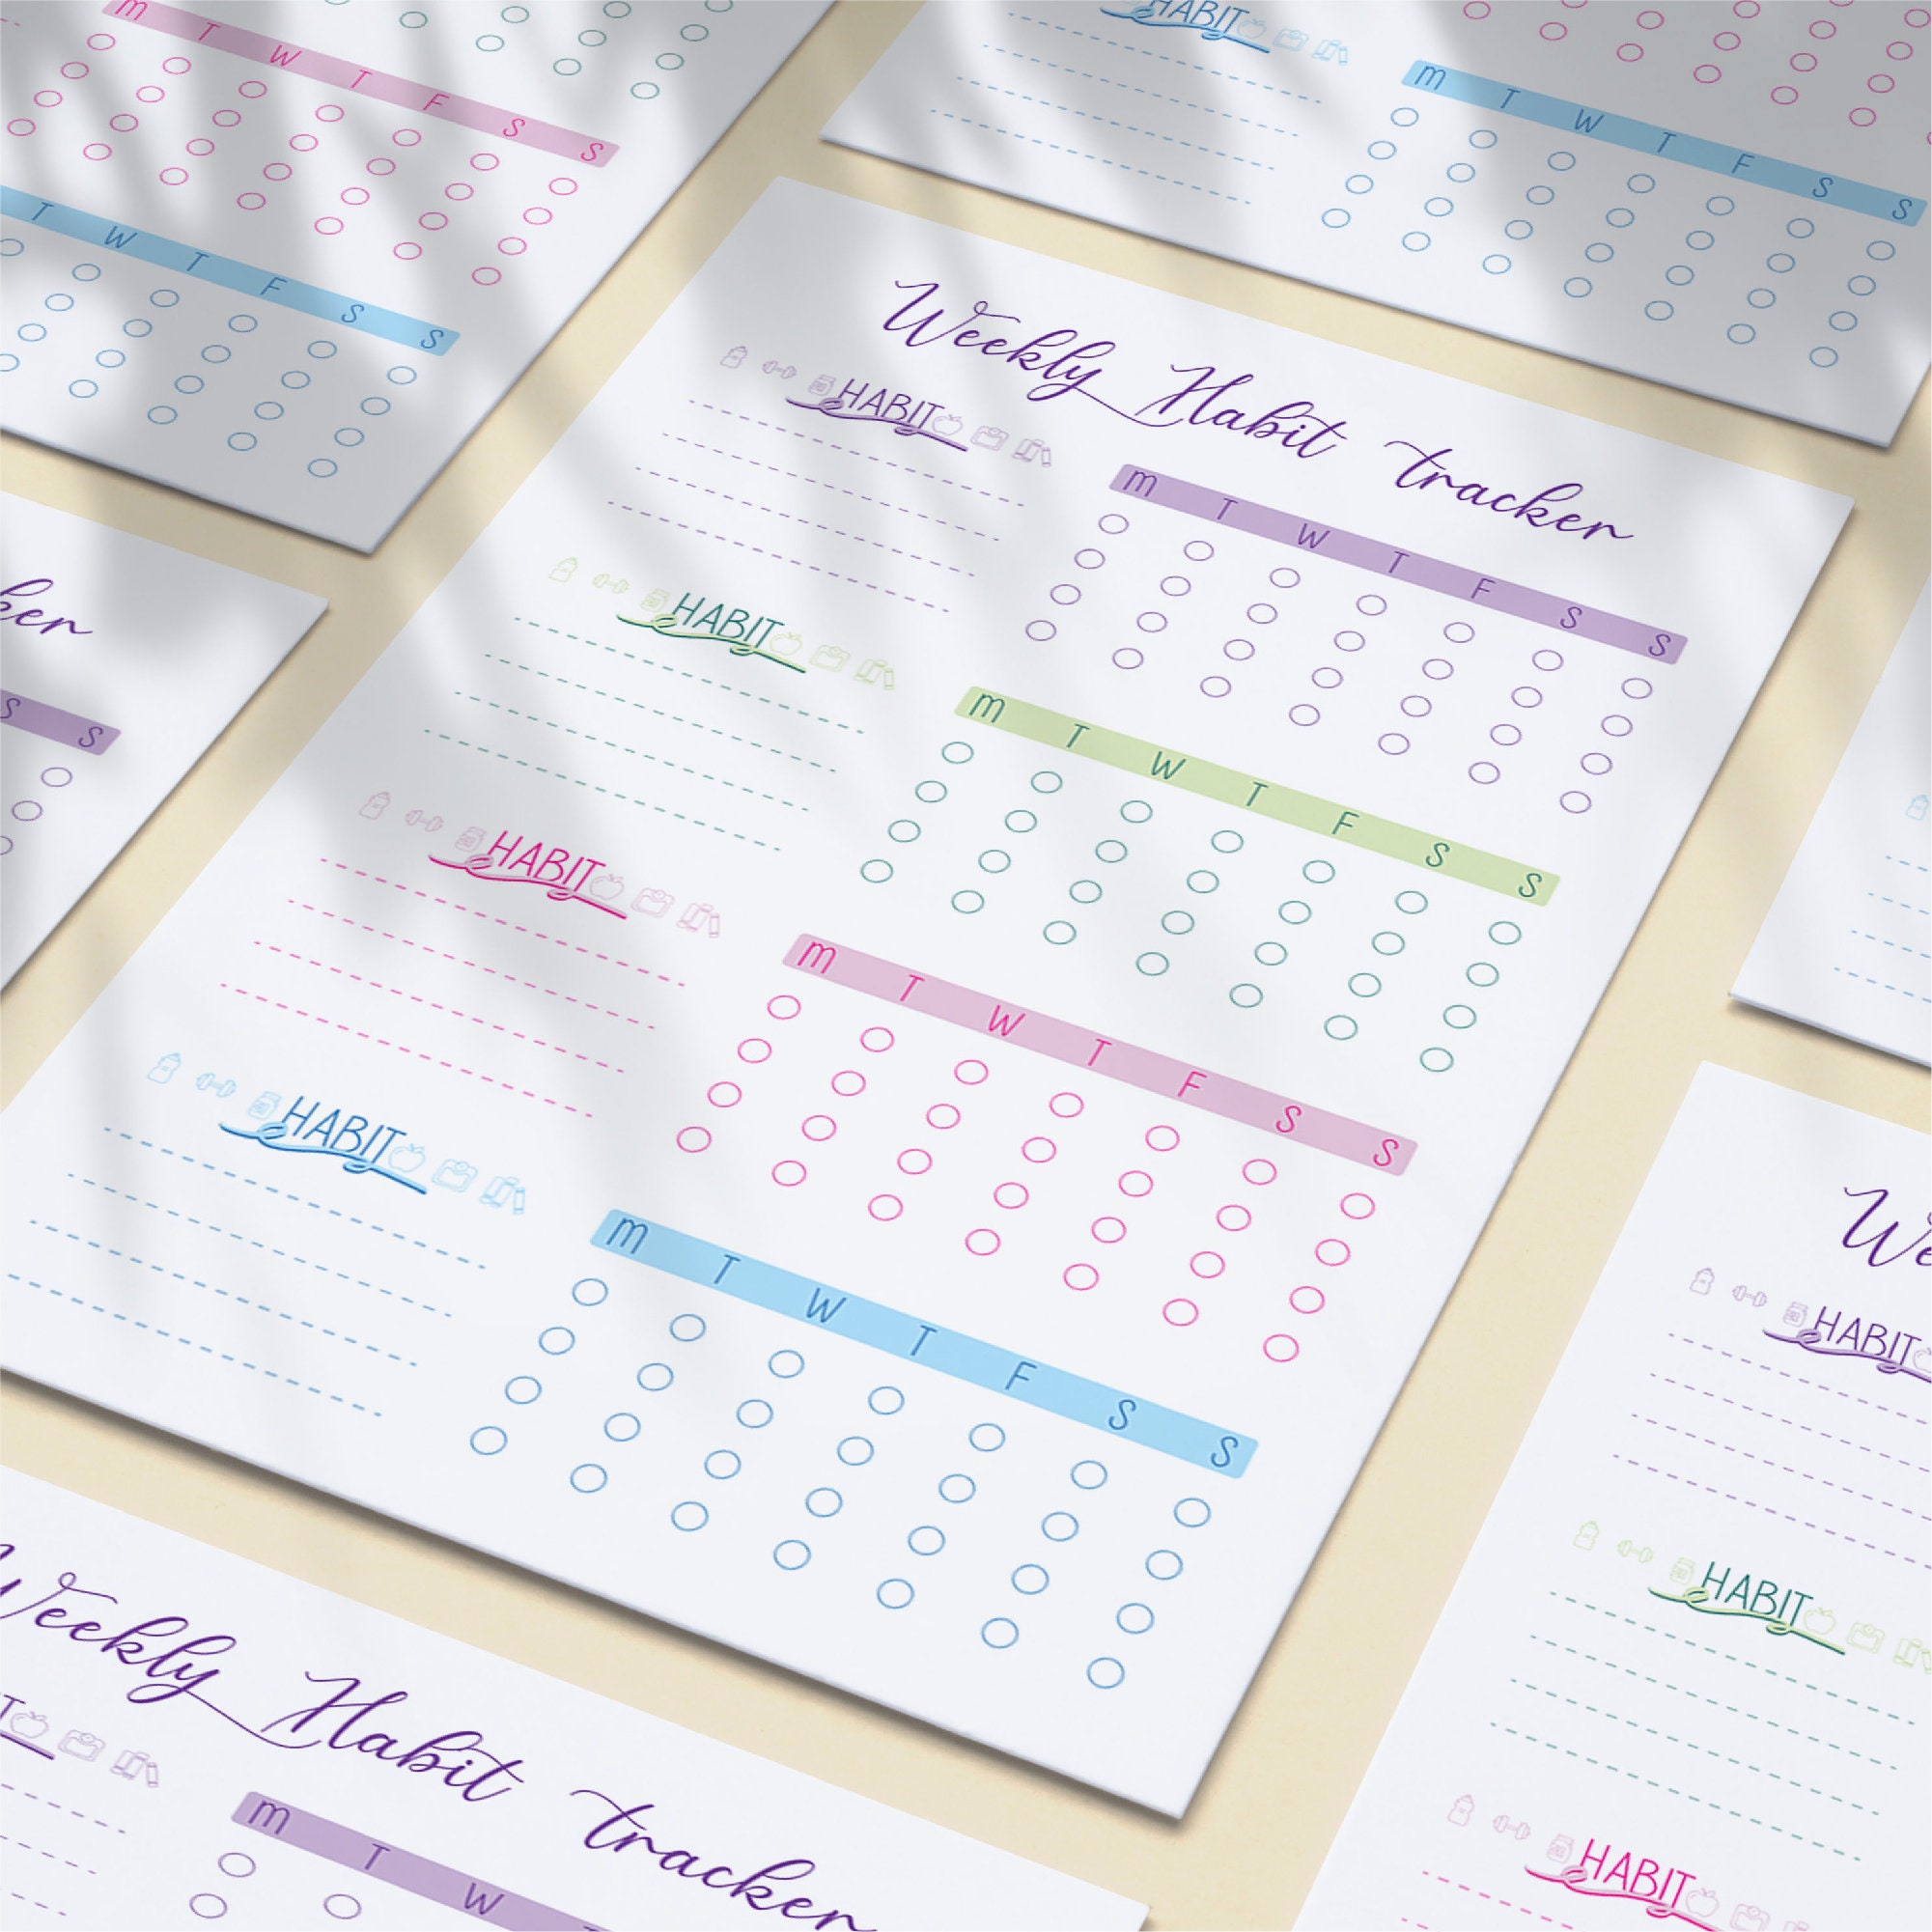 M T W T F S S
T W T F S S
HABIT
M T W T F S S
Weekly Habit tracker
HABIT
M T W T F S S
HABIT
M T W T F S S
HABIT
M T W T F S S
HABIT
M T W T F S S
S S
HABIT
HABIT
HABIT
Weekly Habit tracker
M T W